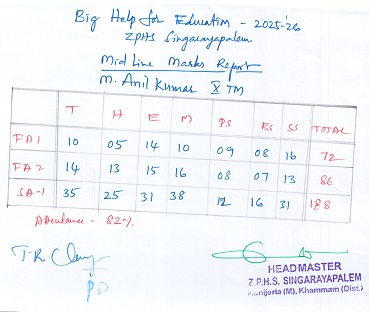 Big Help for Education - 2025-26
ZPHS Singarayapalem
Mid Line Marks Report
M. Anil Kumar X TM
T H E M PS BS SS TOTAL
FA1 10 05 14 10 09 08 16 72
FA2 14 13 15 16 08 07 13 86
SA-1 35 25 31 38 12 16 31 188
Attendance - 82%
HEADMASTER
Z.P.H.S. SINGARAYAPALEM
(M), Khammam (Dist.)